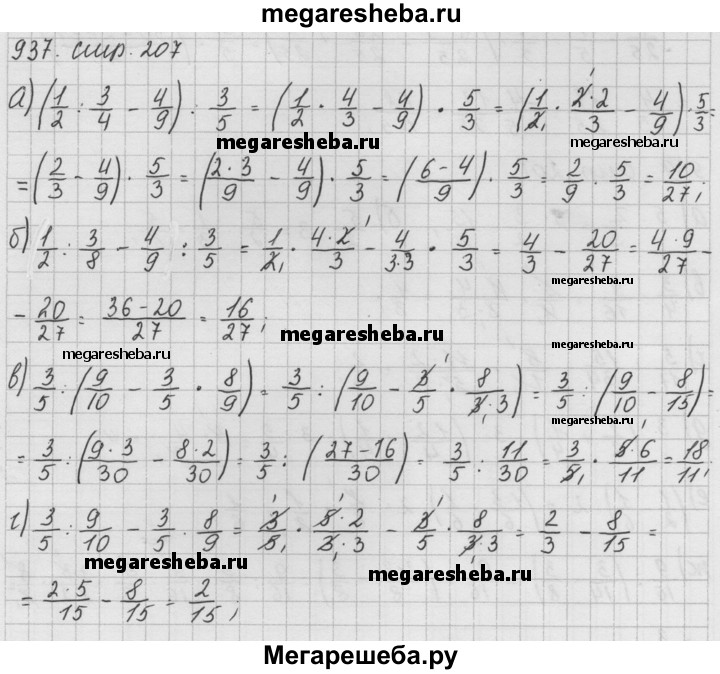 megaresheba.ru
937. стр. 207
а) (1/2 : 3/4 - 4/9) : 3/5 = (1/2 · 4/3 - 4/9) · 5/3 = (1/2 1 · 2 1 · 2/3 - 4/9) · 5/3 =
megaresheba.ru megaresheba.ru
= (2/3 - 4/9) · 5/3 = (2·3/9 - 4/9) · 5/3 = (6-4/9) · 5/3 = 2/9 · 5/3 = 10/27;
б) 1/2 : 3/8 - 4/9 : 3/5 = 1/2 1 · 4·2 1/3 - 4/3·3 · 5/3 = 4/3 - 20/27 = 4·9/27 -
megaresheba.ru
- 20/27 = 36-20/27 = 16/27;
megaresheba.ru megaresheba.ru megaresheba.ru
в) 3/5 : (9/10 - 3/5 · 8/9) = 3/5 : (9/10 - 3 1/5 · 8/3 1·3) = 3/5 : (9/10 - 8/15) =
= 3/5 : (9·3/30 - 8·2/30) = 3/5 : (27-16/30) = 3/5 : 11/30 = 3/5 1 · 5 1·6/11 = 18/11;
г) 3/5 : 9/10 - 3/5 · 8/9 = 3 1/5 1 · 5 1·2/3 1·3 - 3 1/5 · 8/3 1·3 = 2/3 - 8/15 =
megaresheba.ru megaresheba.ru
= 2·5/15 - 8/15 = 2/15;
Мегарешеба.ру